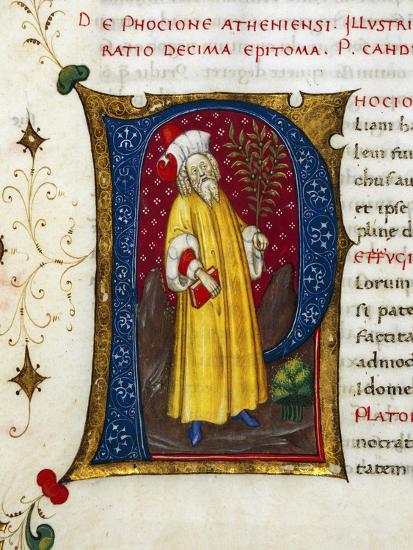 DE PHOCIONE ATHENIENSI. ILLUSTRI
RATIO DECIMA EPITOMA. P. CANDI
P
HOCIO
liam ha
lem fui
chus au
et ipse
pline d
EFFUGI
lorum
si pate
factita
admod
Idome
PLATO
nocrat
tatem